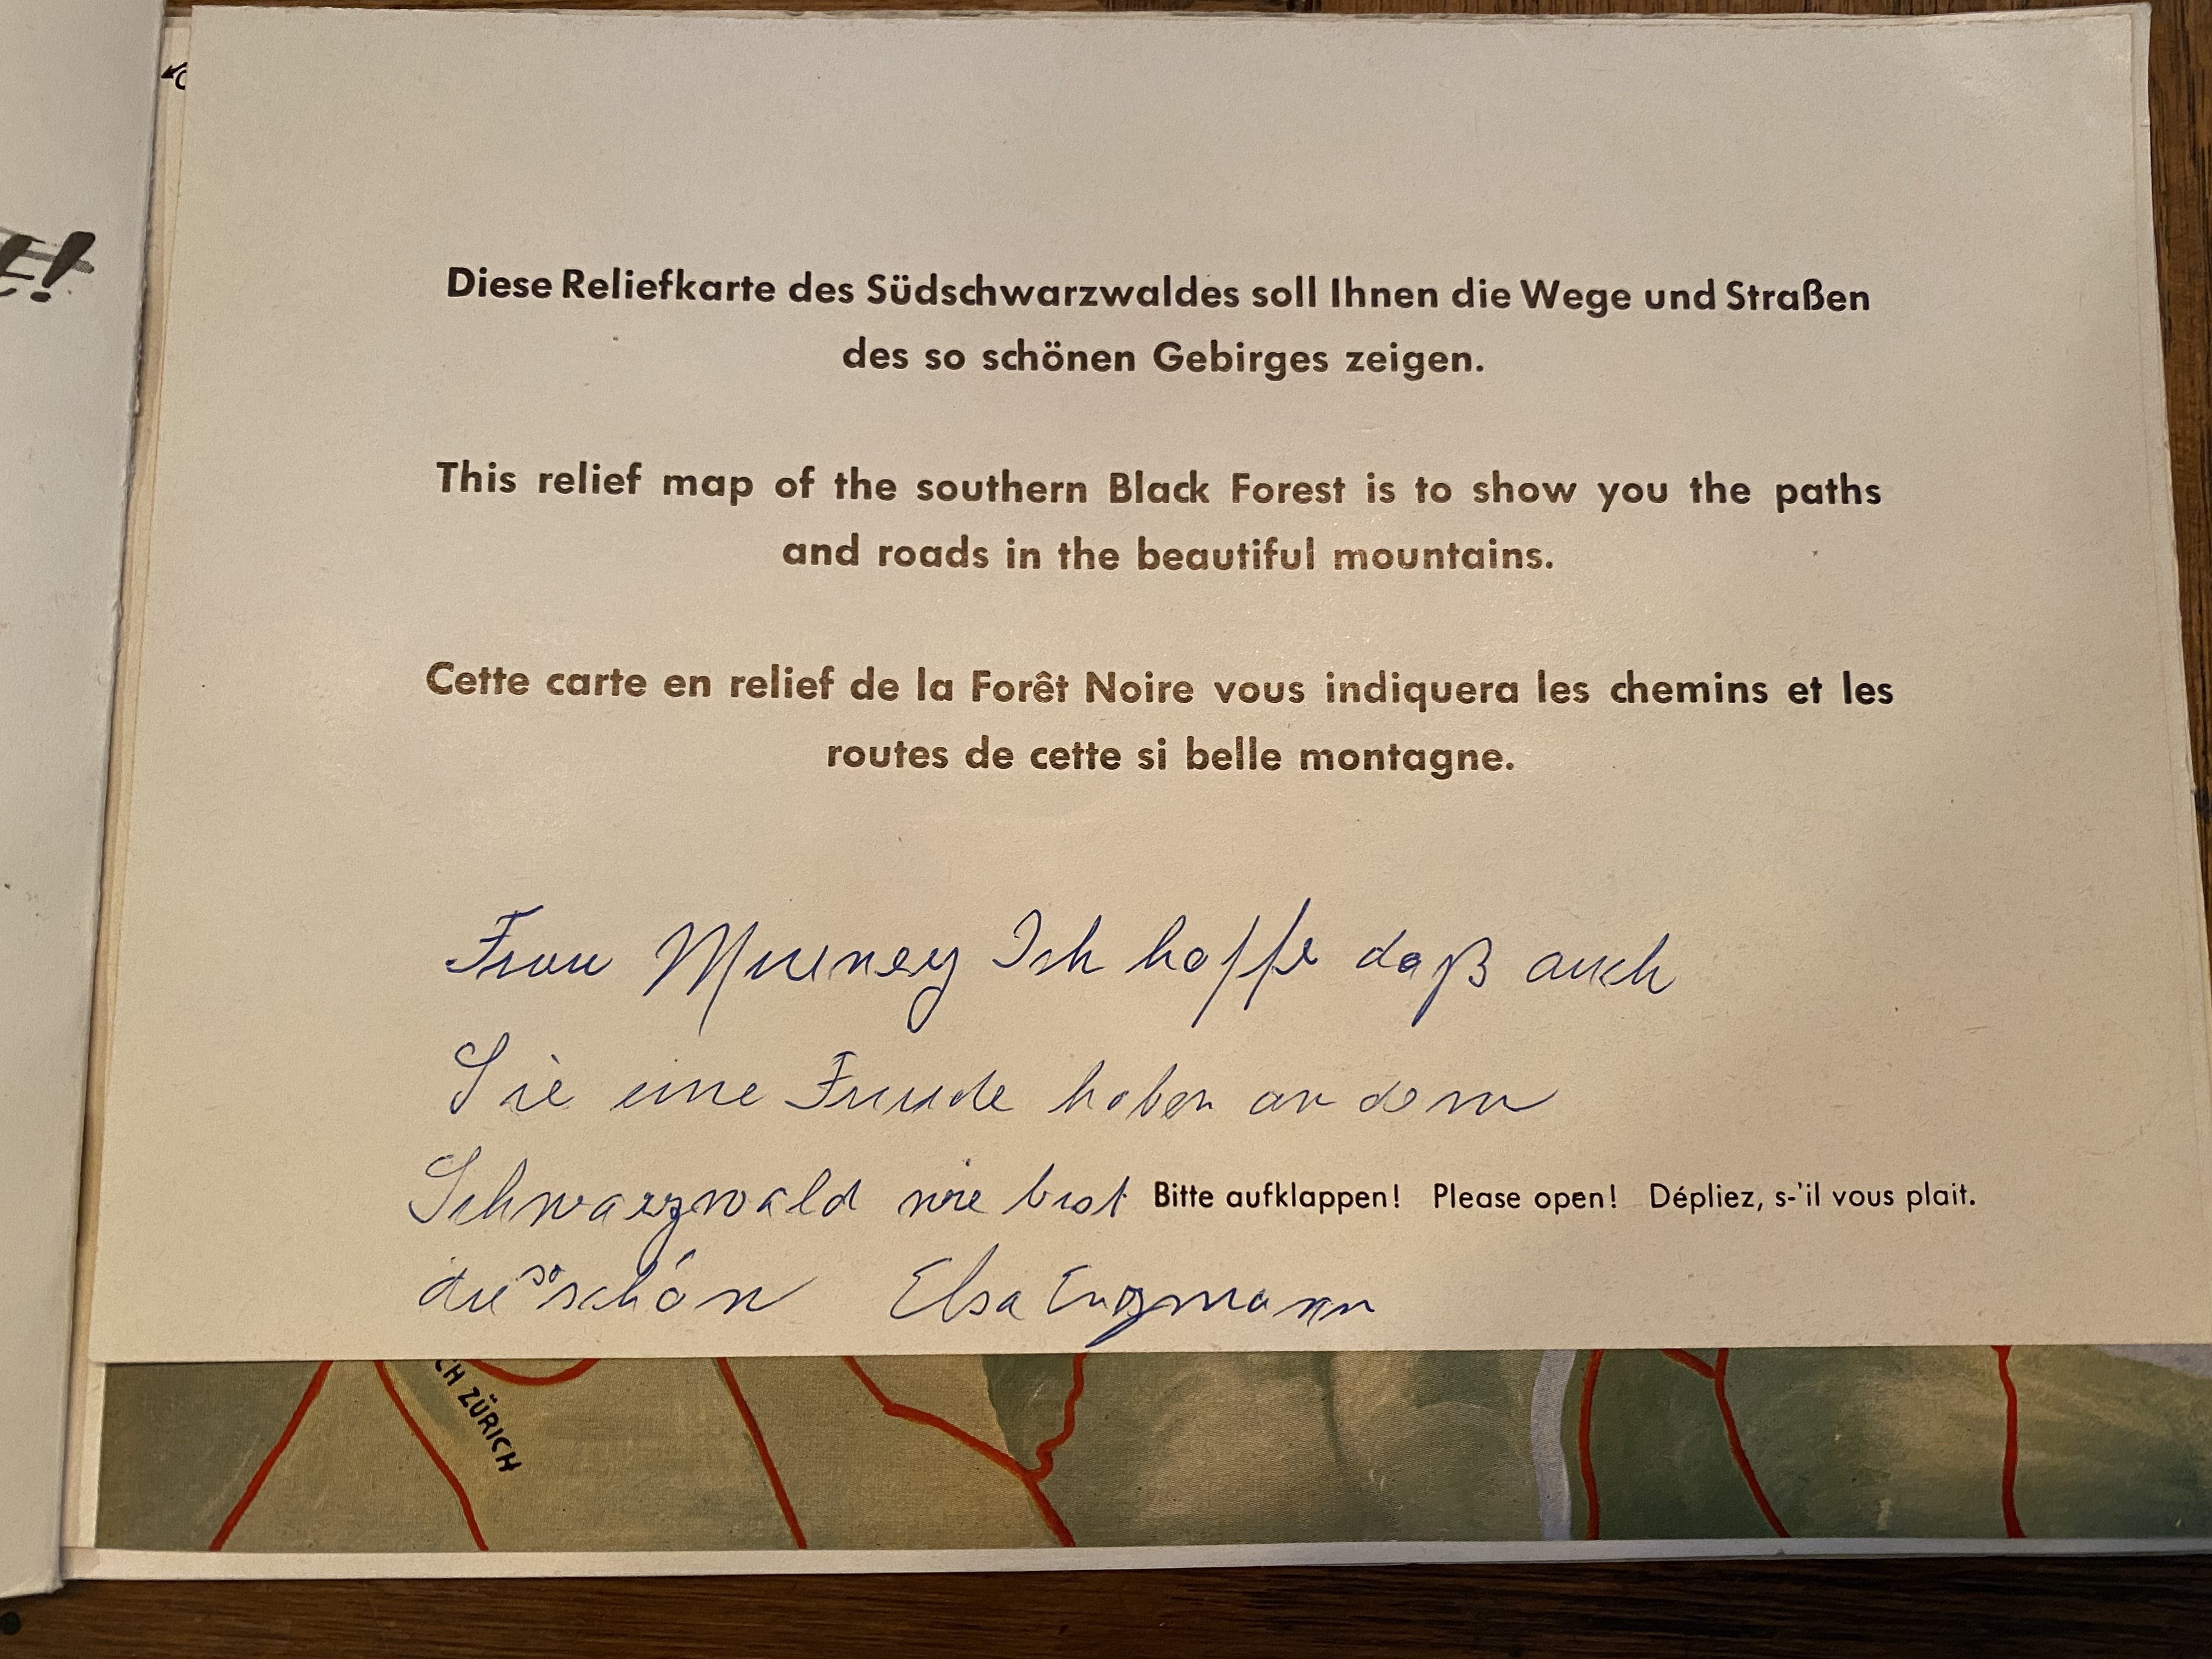 Diese Reliefkarte des Südschwarzwaldes soll Ihnen die Wege und Straßen
des so schönen Gebirges zeigen.
This relief map of the southern Black Forest is to show you the paths
and roads in the beautiful mountains.
Cette carte en relief de la Forêt Noire vous indiquera les chemins et les
routes de cette si belle montagne.
Frau Ich hoffe daß auch
Sie eine Freude haben an dem
Schwarzwald wie
Bitte aufklappen! Please open! Dépliez, s-'il vous plait.
so schön Elsa
CH ZÜRICH